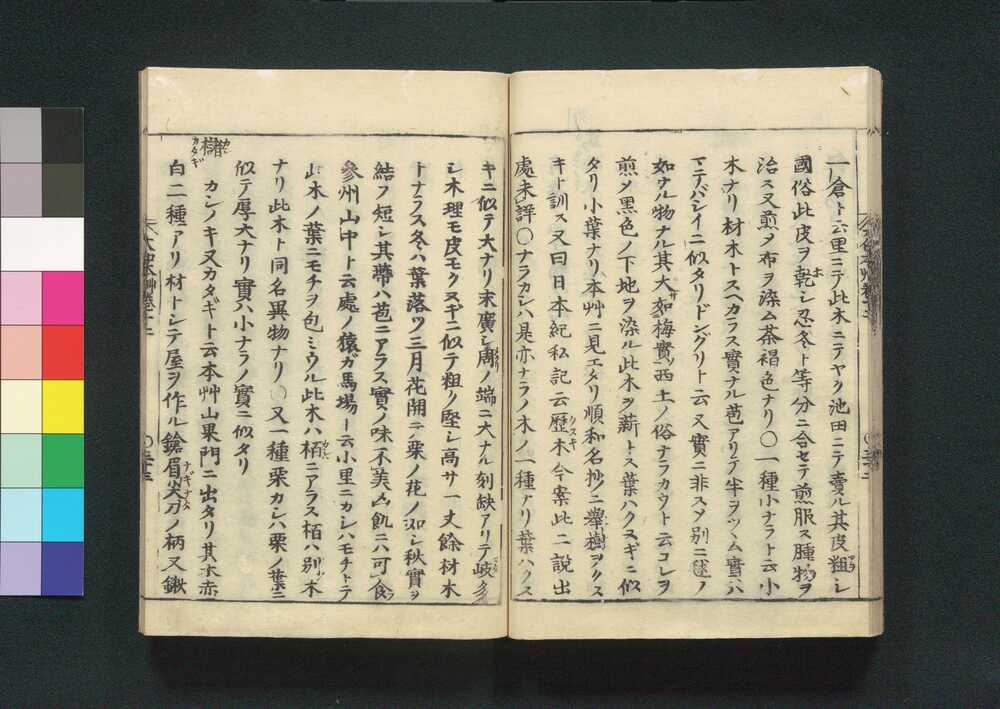 一倉ト云里ニテ此木ニテヤク池田ニテ賣ル其皮粗シ
國俗此皮ヲ乾シ忍冬ト等分ニ合セテ煎服ス腫物ヲ
治ス又煎〆布ヲ染ム茶褐色ナリ〇一種小ナラト云小
木ナリ材木トスヘカラス實ナル苞アリテ半ヲツヽム實ハ
マテバシイニ似タリドングリト云又實ニ非スメ別ニ毬ノ
如ナル物ナル其大サ如梅實ノ西土ノ俗ナラカウト云コレヲ
煎〆黑色ノ下地ヲ染ル此木ヲ薪トス葉ハクヌギニ似
タリ小葉ナリ本艸ニ見エタリ順和名抄ニ擧樹ヲクヌ
キト訓ス又曰日本紀私記云歷木今案此二說出
處未詳〇ナラカシハ是亦ナラノ木ノ一種ナリ葉ハクヌ
キニ似テ大ナリ末廣シ周ノ端ニ大ナル刻缺アリテ岐多
シ木理モ皮モクヌギニ似テ粗ク堅シ高サ一丈餘材木
トナラス冬ハ葉落ツ三月花開ニ栗ノ花ノ如シ秋實ヲ
結フ短シ其蔕ハ苞ニアラス實ノ味不美凶飢ニハ可食
參州山中ト云處ノ猿ガ馬場ト云小里ニカシハモチトテ
此木ノ葉ニモチヲ包ミウル此木ハ栢ニアラス栢ハ別ノ木
ナリ此木ト同名異物ナリ〇又一種栗カシハ栗ノ葉ニ
似テ厚大ナリ實ハ小ナラノ實ニ似タリ
櫧樹
カシノキ又カタギト云本艸山果門ニ出タリ其木赤
白二種アリ材トシテ屋ヲ作ル鎗眉尖刀ノ柄又鍬